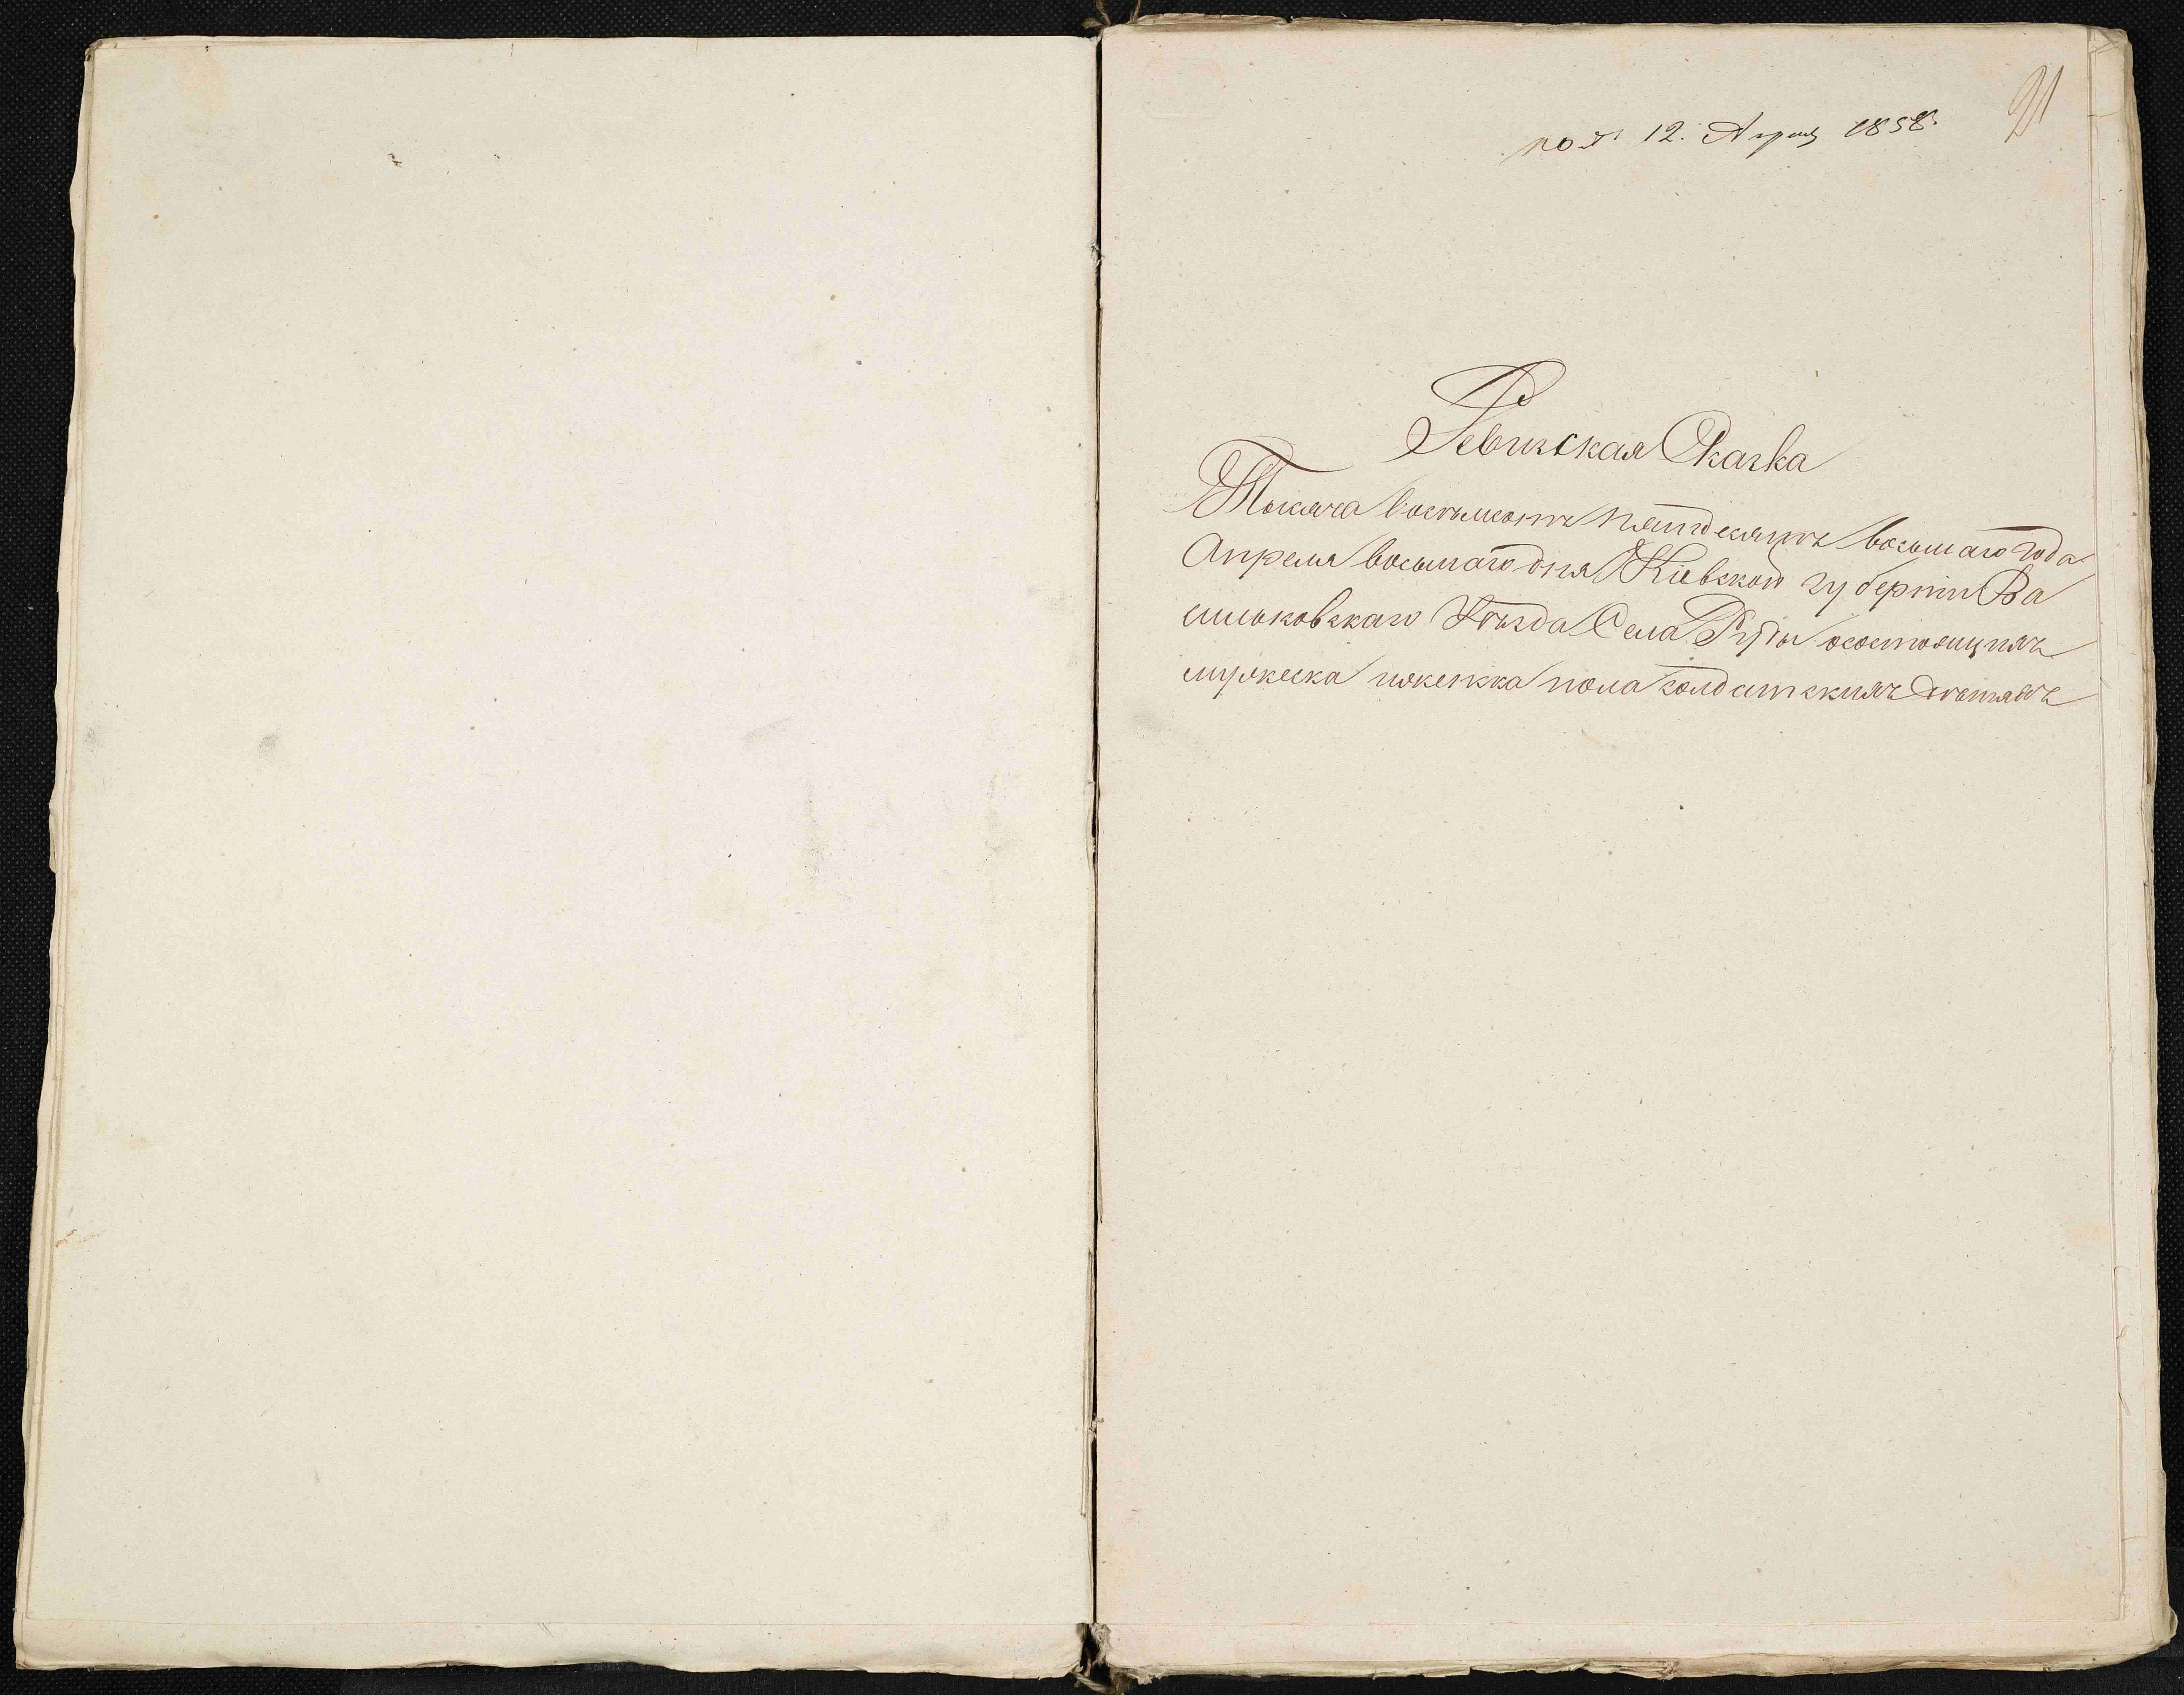 91
пол. 12. Апреля 1858.
Ревизская Сказка
Тысяча восемьсотъ пятдесятъ восьмаго года
Апреля восьмаго дня Киевской губернии Ва
сильковскаго Уѣзда Села Руды осостоящихъ
мужеска иженска пола солдатскихъ дѣтяхъ